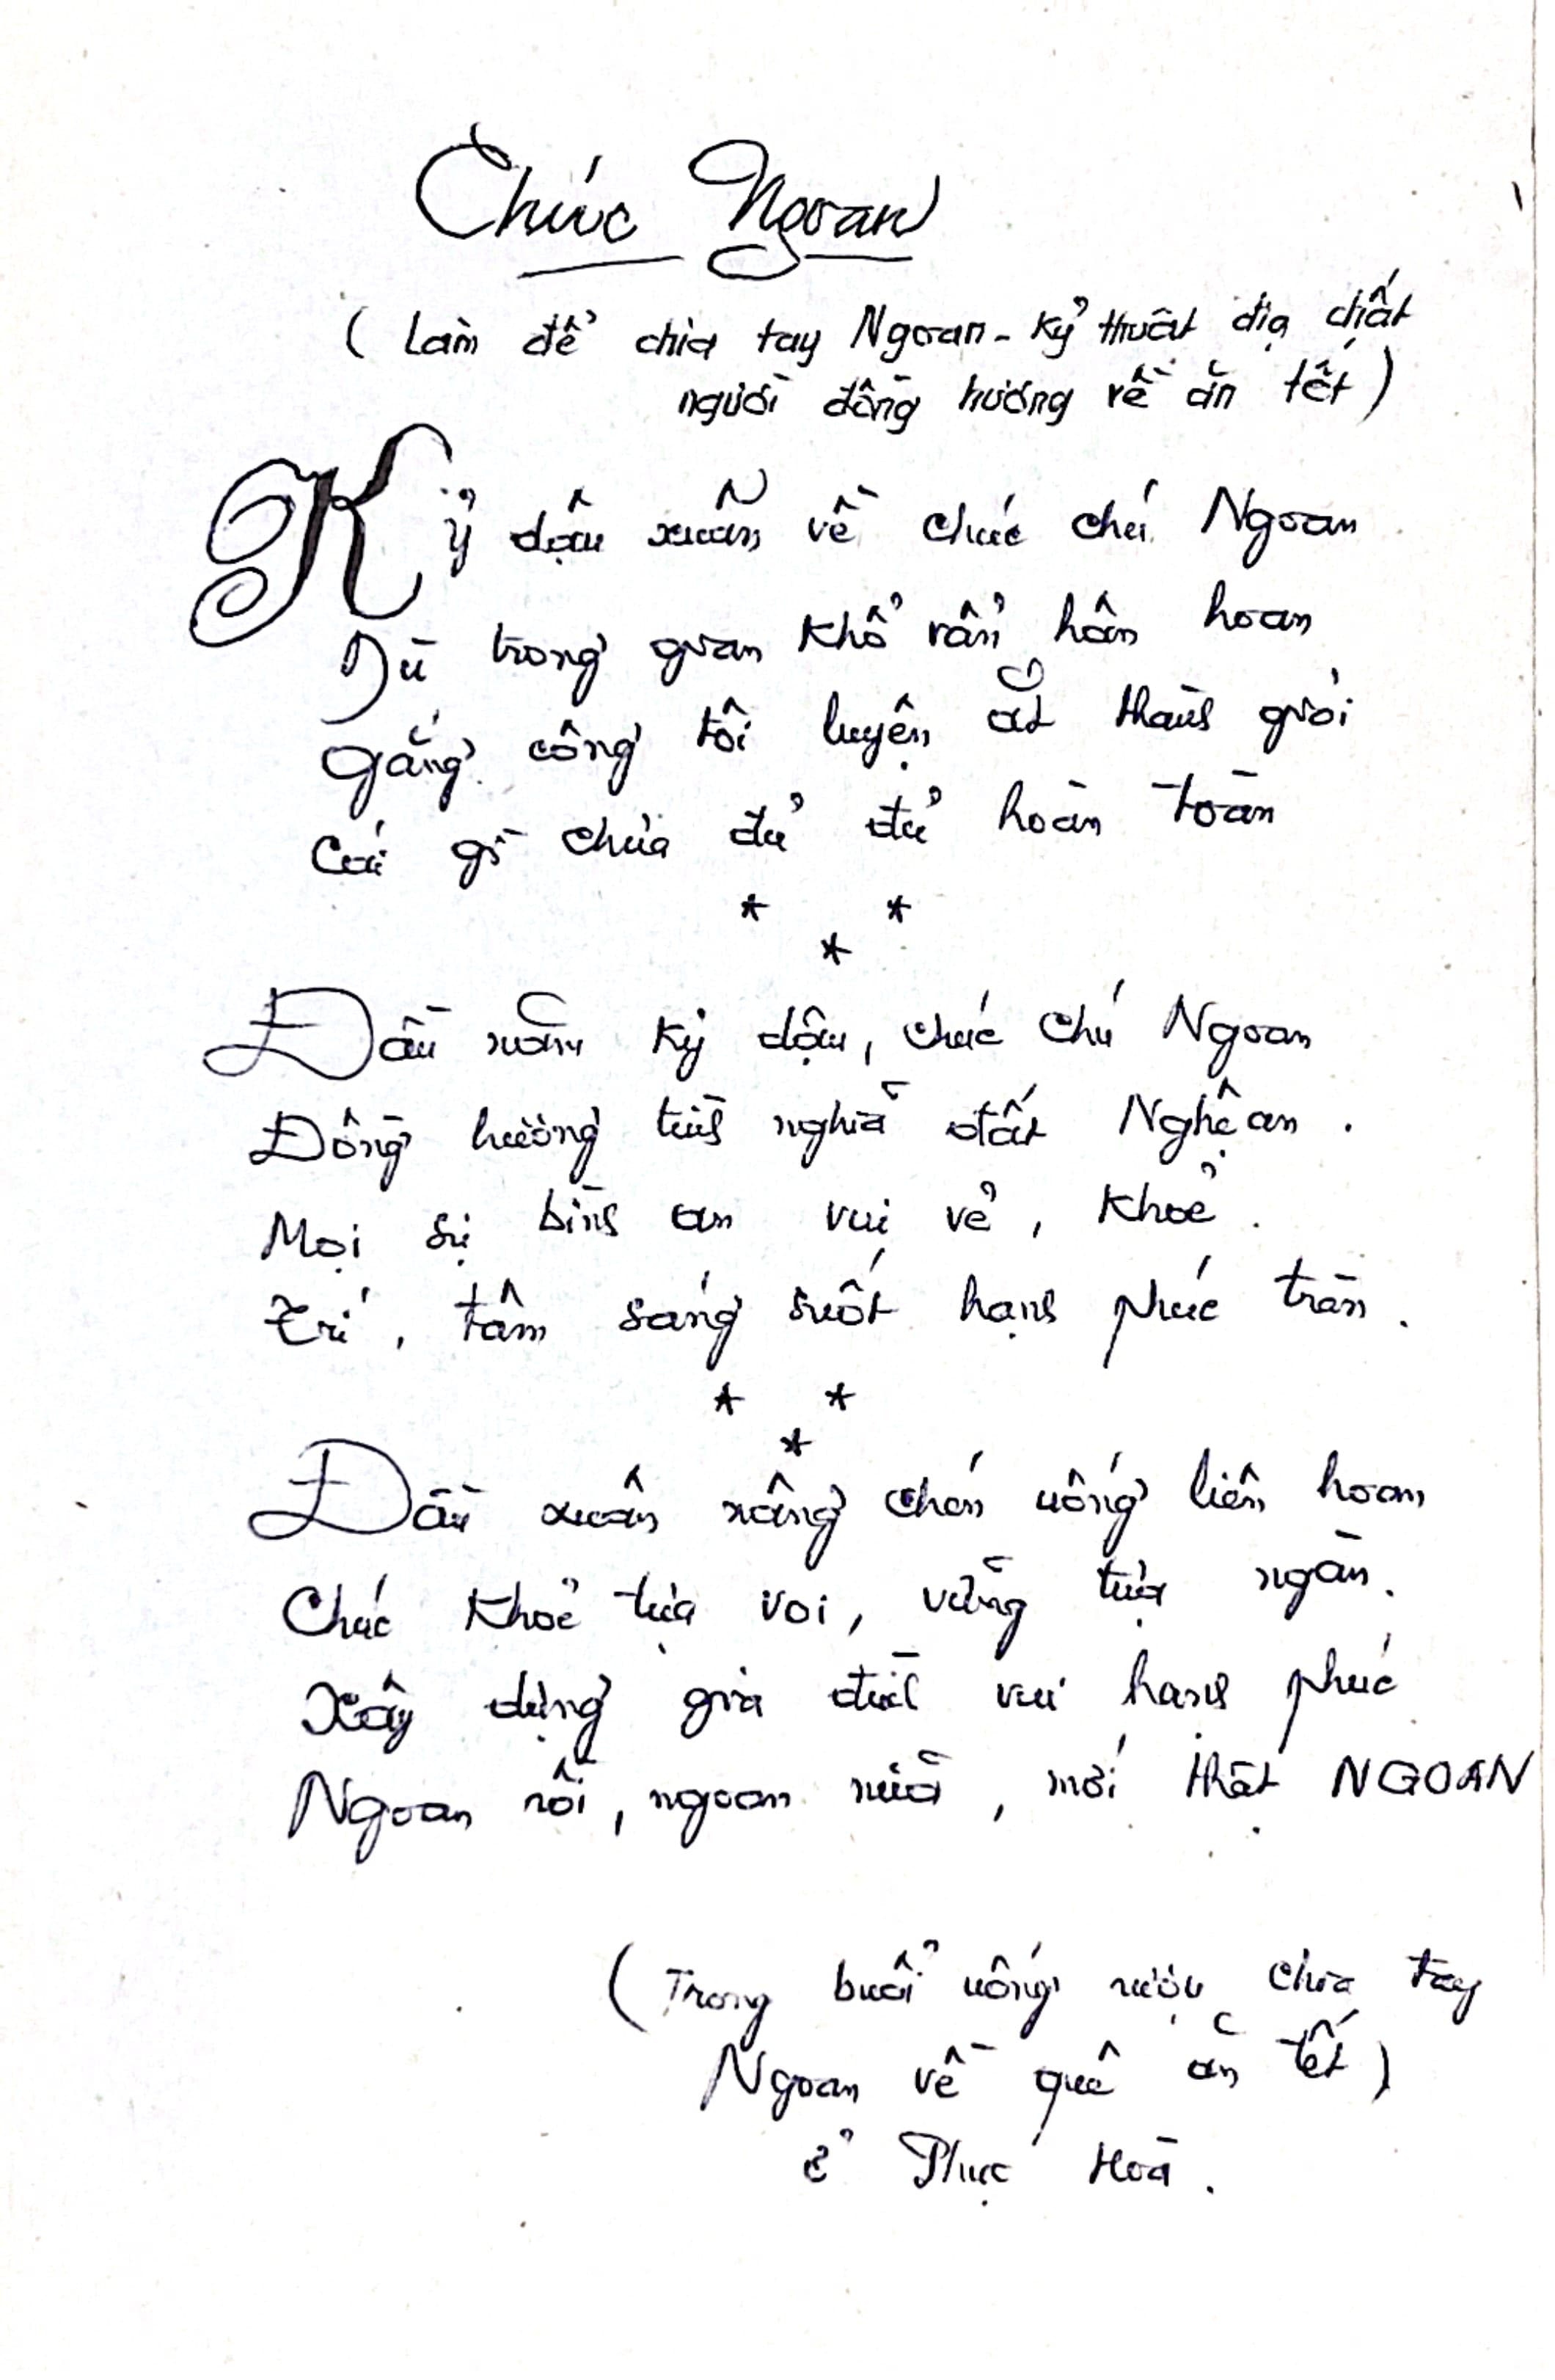 Chúc Ngoan
( Làm để chia tay Ngoan - kỷ thuật địa chất
người đồng hương về ăn tết )
Kỷ dậu xuân về chúc chú Ngoan
Dù trong gian khổ vẩn hân hoan
Gắng công tôi luyện ắt thành giỏi
Cái gì chưa đủ đủ hoàn toàn
* *
*
Đầu năm kỷ dậu, chúc chú Ngoan
Đồng hương tình nghĩa đất Nghệ an .
Mọi sự bình an vui vẻ , khoẻ .
Trí , tâm sáng suốt hạnh phúc tràn .
* *
*
Đầu xuân nâng chén uống liên hoan
Chúc khoẻ tựa voi , vững tựa ngàn .
Xây dựng gia đình vui hạnh phúc
Ngoan rồi , ngoan nữa , mới thật NGOAN
( Trong buổi uống rượu chia tay
Ngoan về quê ăn tết )
ở Phục Hoà .